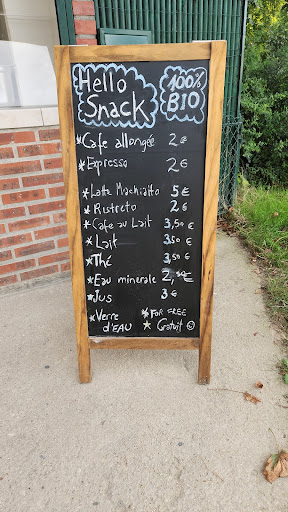 Hello Snack
100% BIO
Cafe allongée 2€
Expresso 2€
Latte Machiatto 5€
Ristreto 2€
Cafe au Lait 3,50€
Lait 3,50€
Thé 3,50€
Eau minerale 2,50€
Jus 3€
Verre d'EAU
FOR FREE
Gratuit